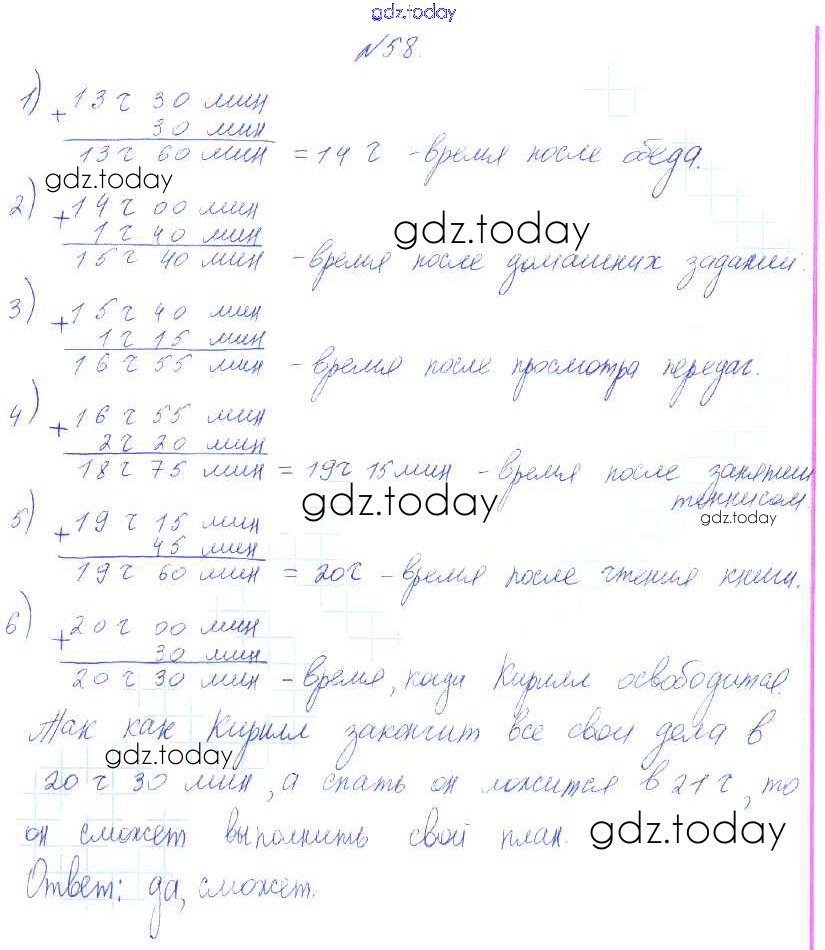 gdz.today
№58.
1) + 13 ч 30 мин
30 мин
13 ч 60 мин = 14 ч - время после обеда.
gdz.today
2) + 14 ч 00 мин
1 ч 40 мин
15 ч 40 мин - время после домашних заданий.
gdz.today
3) + 15 ч 40 мин
1 ч 15 мин
16 ч 55 мин - время после просмотра передач.
4) + 16 ч 55 мин
2 ч 20 мин
18 ч 75 мин = 19 ч 15 мин - время после занятий
теннисом.
gdz.today
gdz.today
5) + 19 ч 15 мин
45 мин
19 ч 60 мин = 20 ч - время после чтения книги.
6) + 20 ч 00 мин
30 мин
20 ч 30 мин - время, когда Кирилл освободится.
Так как Кирилл закончит все свои дела в
gdz.today
20 ч 30 мин, а спать он ложится в 21 ч, то
он сможет выполнить свой план.
gdz.today
Ответ: да, сможет.